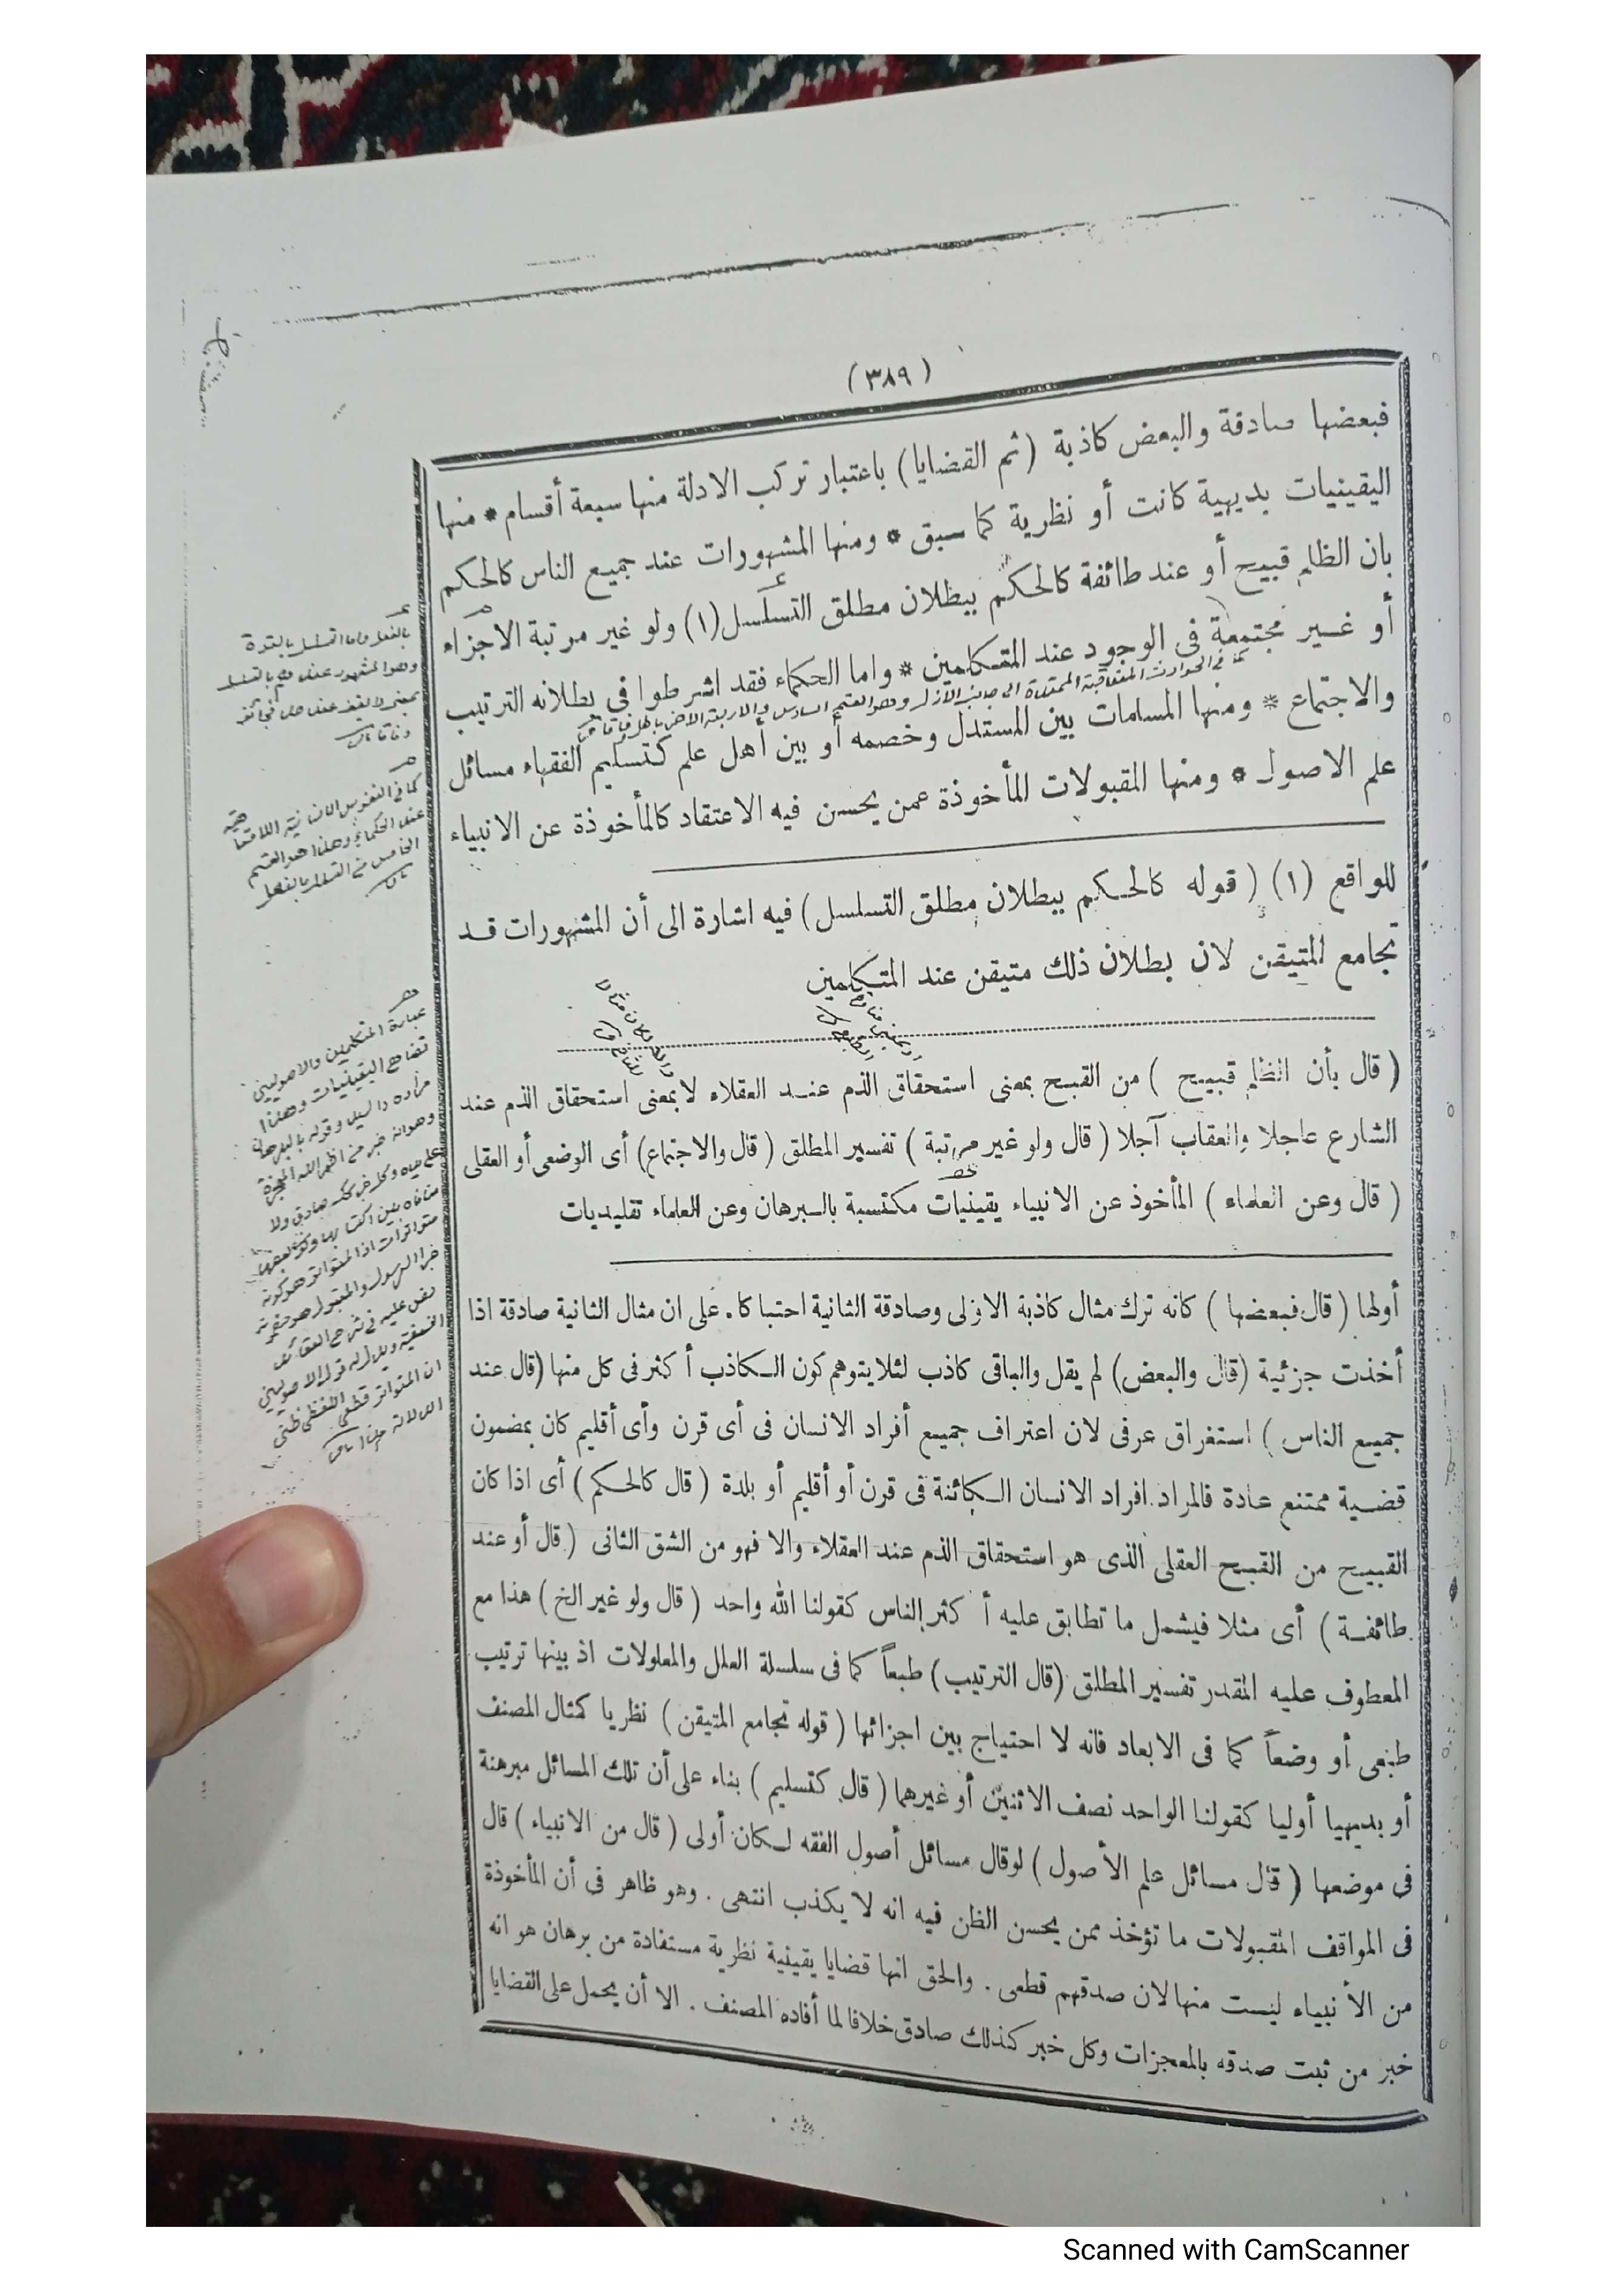 (٣٨٩)
فبعضها صادقة والبعض كاذبة (ثم القضايا) باعتبار تركب الادلة منها سبعة أقسام * منها
اليقينيات بديهية كانت أو نظرية كما سبق * ومنها المشهورات عند جميع الناس كالحكم
بان الظلم قبيح أو عند طائفة كالحكم ببطلان مطلق التسلسل(١) ولو غير مرتبة الاجزاء
أو غير مجتمعة فى الوجود عند المتكلمين * واما الحكماء فقد اشرطوا فى بطلانه الترتيب
كما في الحوادث المتعاقبة الممتدة الى جانب الأزل وهو القسم السادس والاربعة الاخر باطل
والاجتماع * ومنها المسلمات بين المستدل وخصمه أو بين أهل علم كتسليم الفقهاء مسائل
علم الاصول * ومنها المقبولات المأخوذة عمن يحسن فيه الاعتقاد كالمأخوذة عن الانبياء
للواقع (١) ( قوله كالحكم ببطلان مطلق التسلسل) فيه اشارة الى أن المشهورات قد
تجامع المتيقن لان بطلان ذلك متيقن عند المتكلمين
( قال بأن الظلم قبيح ) من القبح بمعنى استحقاق الذم عند العقلاء لابمعنى استحقاق الذم عند
الشارع عاجلا والعقاب آجلا ( قال ولو غير مرتبة ) تفسير المطلق ( قال والاجتماع) أى الوضعى أو العقلى
( قال وعن العلماء ) المأخوذ عن الانبياء يقينيات مكتسبة بالبرهان وعن العلماء تقليديات
أولها ( قال فبعضها ) كانه ترك مثال كاذبة الاولى وصادقة الثانية احتباكا . على ان مثال الثانية صادقة اذا
أخذت جزئية (قال والبعض) لم يقل والباقى كاذب لئلا يتوهم كون الكاذب أكثر فى كل منها (قال عند
جميع الناس ) استغراق عرفى لان اعتراف جميع أفراد الانسان فى أى قرن وأى أقليم كان بمضمون
قضية ممتنع عادة فالمراد افراد الانسان الكائنة فى قرن أو أقليم أو بلدة ( قال كالحكم ) أى اذا كان
القبيح من القبح العقلى الذى هو استحقاق الذم عند العقلاء والا فهو من الشق الثانى ( قال أو عند
طائفة ) أى مثلا فيشمل ما تطابق عليه أكثر الناس كقولنا الله واحد ( قال ولو غير الخ ) هذا مع
المعطوف عليه المقدر تفسير المطلق (قال الترتيب) طبعاً كما فى سلسلة العلل والمعلولات اذ بينها ترتيب
طبعى أو وضعاً كما فى الابعاد فانه لا احتياج بين اجزائها ( قوله تجامع المتيقن ) نظريا كمثال المصنف
أو بديهيا أوليا كقولنا الواحد نصف الاثنين أو غيرهما ( قال كتسليم ) بناء على أن تلك المسائل مبرهنة
فى موضعها ( قال مسائل علم الأصول ) لوقال مسائل أصول الفقه لكان أولى ( قال من الانبياء ) قال
فى المواقف المقبولات ما تؤخذ ممن يحسن الظن فيه انه لا يكذب انتهى . وهو ظاهر فى أن المأخوذة
من الأنبياء ليست منها لان صدقهم قطعى . والحق انها قضايا يقينية نظرية مستفادة من برهان هو انه
خبر من ثبت صدقه بالمعجزات وكل خبر كذلك صادق خلافا لما أفاده المصنف . الا أن يحمل على القضايا
بالفعل واما التسلسل بالقوة
وهو المشهور عندهم بالتسلسل
بمعنى لا يقف عند حد فجائز
كما في النفوس الانسانية اللامتناهية
عند الحكماء وهذا هو القسم
الخامس من التسلسل بالفعل
عبارة المتكلمين والاصوليين
Scanned with CamScanner